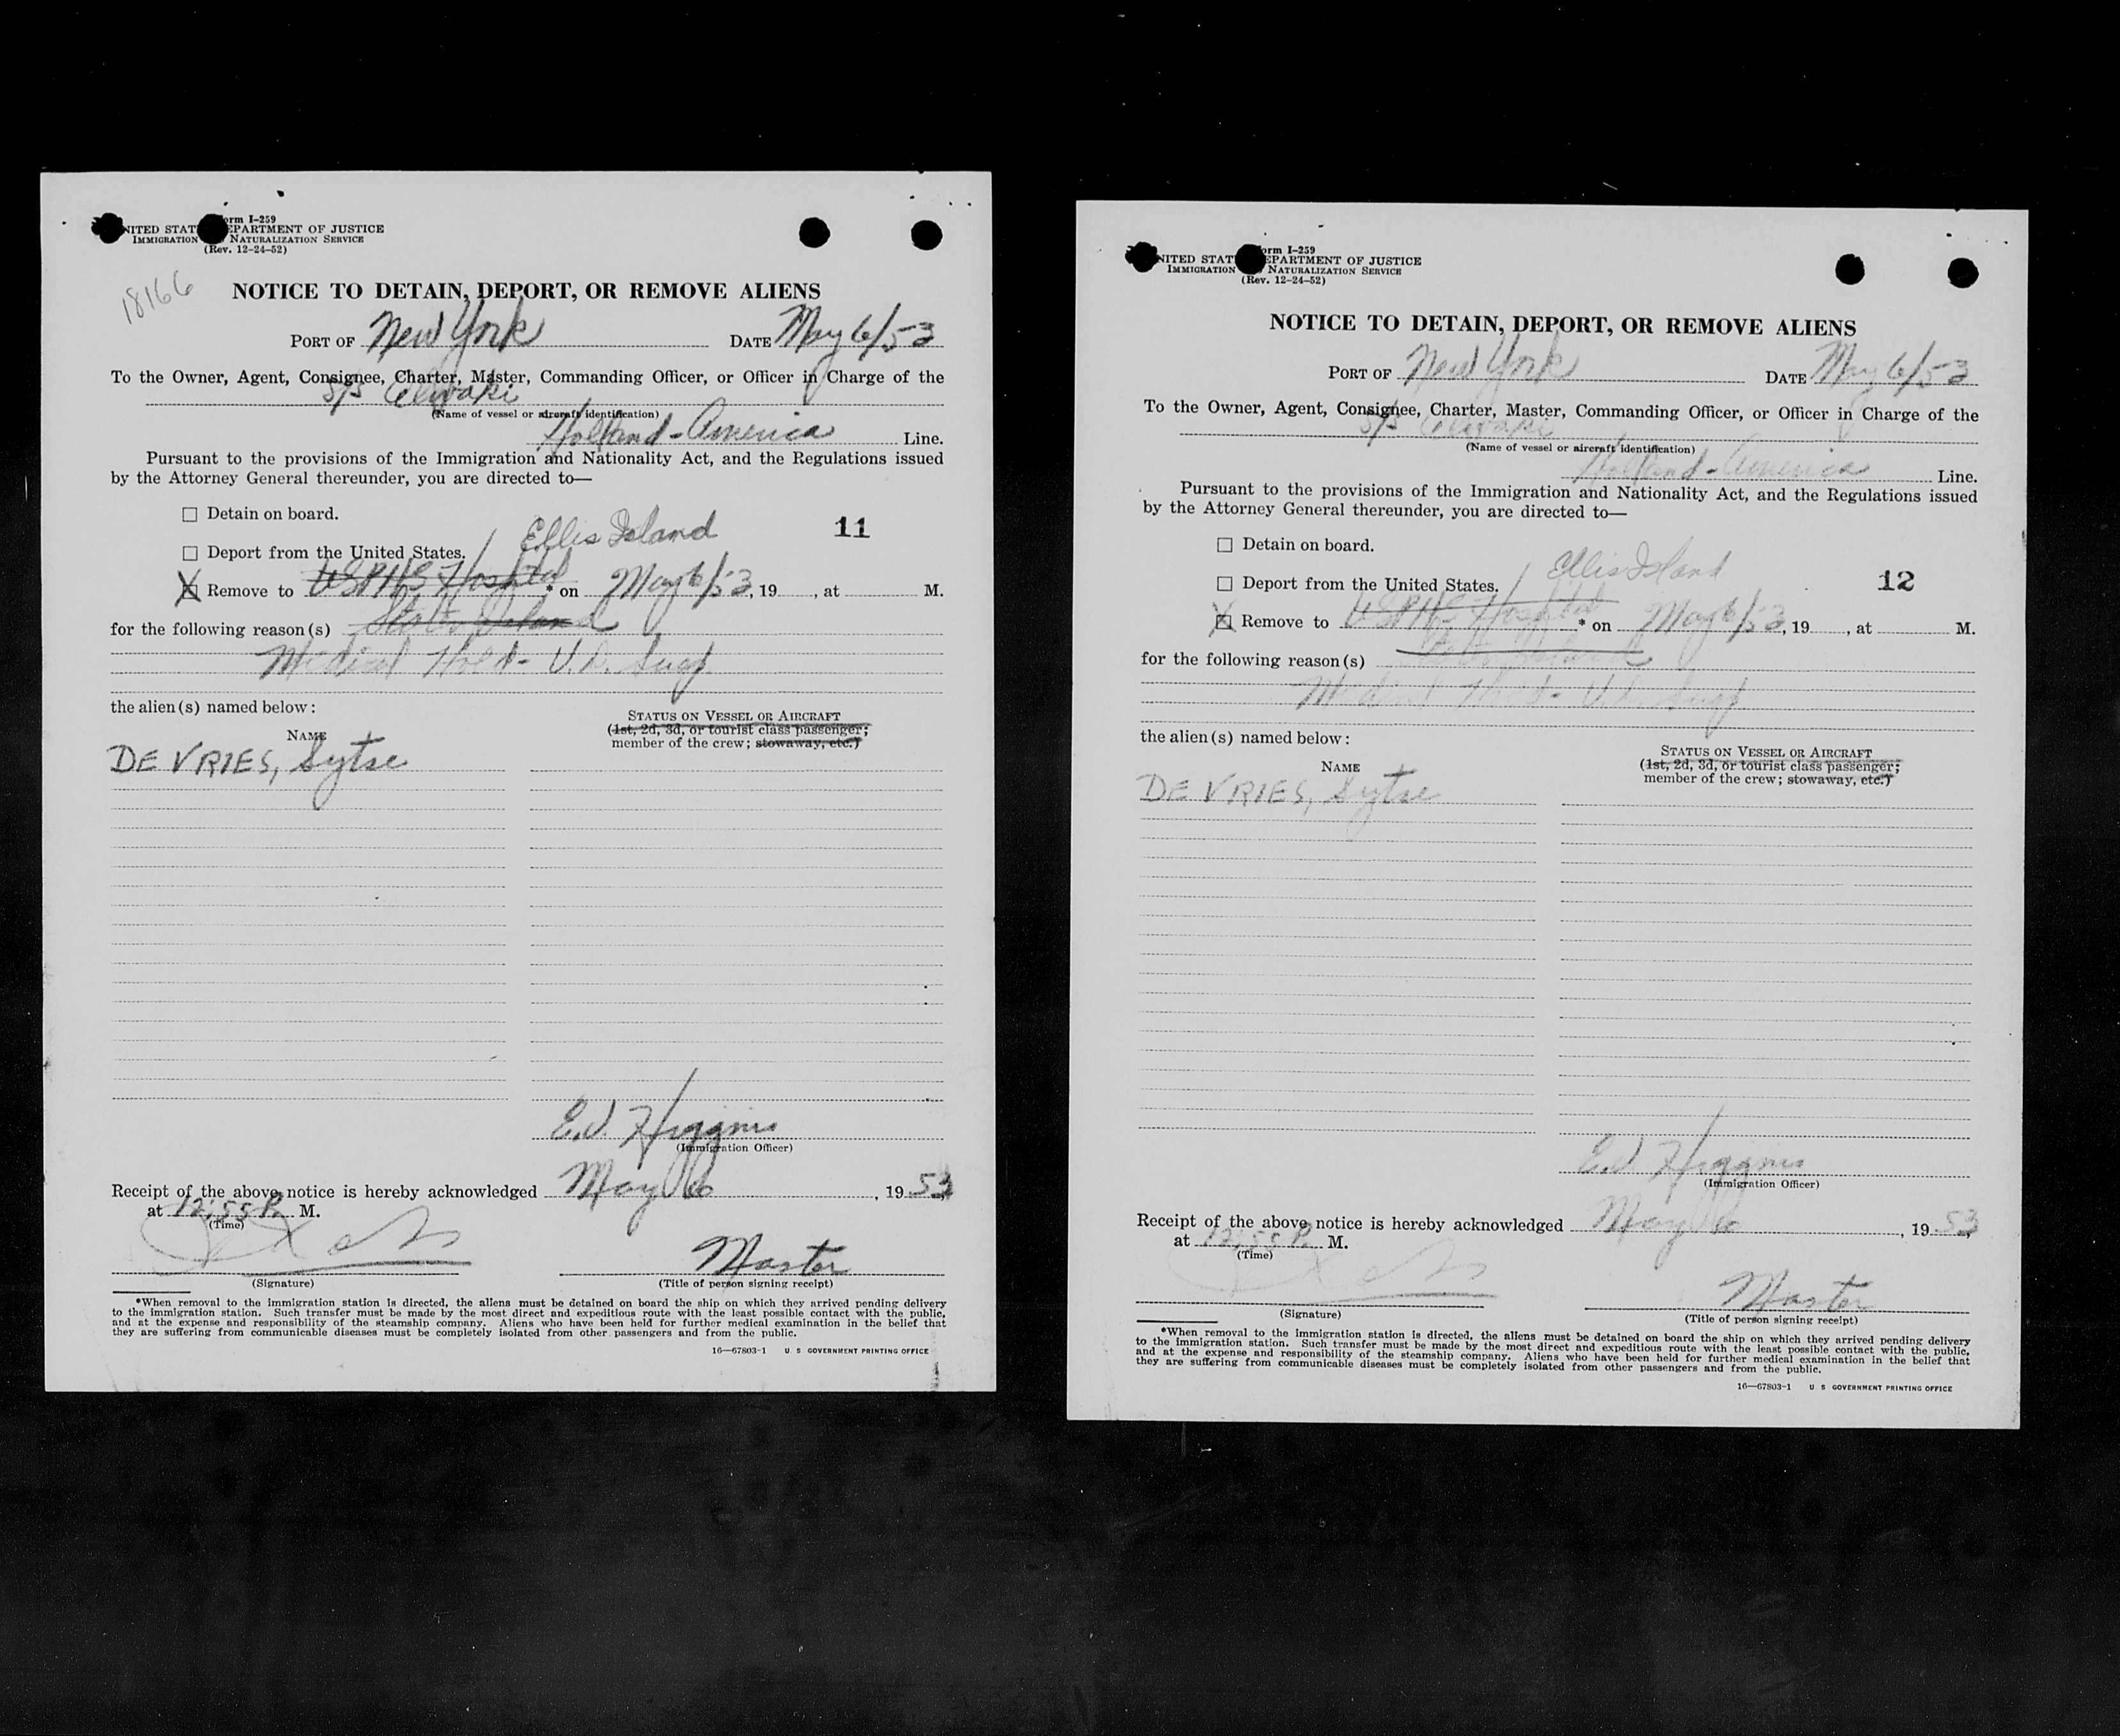 Form I-259
UNITED STATES DEPARTMENT OF JUSTICE
IMMIGRATION NATURALIZATION SERVICE
(Rev. 12-24-52)
18166
NOTICE TO DETAIN, DEPORT, OR REMOVE ALIENS
PORT OF New York DATE May 6/53
To the Owner, Agent, Consignee, Charter, Master, Commanding Officer, or Officer in Charge of the
S/S
(Name of vessel or aircraft identification)
Holland-America Line.
Pursuant to the provisions of the Immigration and Nationality Act, and the Regulations issued
by the Attorney General thereunder, you are directed to—
☐ Detain on board.
Ellis Island 11
☐ Deport from the United States.
☒ Remove to USPHS Hospital * on May 6/53, 19 , at M.
for the following reason(s) Staten Island
Medical Hold - V.D. Susp.
the alien(s) named below:
NAME
STATUS ON VESSEL OR AIRCRAFT
(1st, 2d, 3d, or tourist class passenger;
member of the crew; stowaway, etc.)
DE VRIES, Sytse
E.J. Higgins
(Immigration Officer)
Receipt of the above notice is hereby acknowledged May 6, 1953
at 12:55 P. M.
(Time)
Master
(Signature) (Title of person signing receipt)
*When removal to the immigration station is directed, the aliens must be detained on board the ship on which they arrived pending delivery
to the immigration station. Such transfer must be made by the most direct and expeditious route with the least possible contact with the public,
and at the expense and responsibility of the steamship company. Aliens who have been held for further medical examination in the belief that
they are suffering from communicable diseases must be completely isolated from other passengers and from the public.
16—67803-1 U S GOVERNMENT PRINTING OFFICE
Form I-259
UNITED STATES DEPARTMENT OF JUSTICE
IMMIGRATION NATURALIZATION SERVICE
(Rev. 12-24-52)
NOTICE TO DETAIN, DEPORT, OR REMOVE ALIENS
PORT OF New York DATE May 6/53
To the Owner, Agent, Consignee, Charter, Master, Commanding Officer, or Officer in Charge of the
S/S
(Name of vessel or aircraft identification)
Holland-America Line.
Pursuant to the provisions of the Immigration and Nationality Act, and the Regulations issued
by the Attorney General thereunder, you are directed to—
☐ Detain on board.
Ellis Island 12
☐ Deport from the United States.
☒ Remove to USPHS Hospital * on May 6/53, 19 , at M.
for the following reason(s) Staten Island
Medical Hold - V.D. Susp
the alien(s) named below:
NAME
STATUS ON VESSEL OR AIRCRAFT
(1st, 2d, 3d, or tourist class passenger;
member of the crew; stowaway, etc.)
DE VRIES, Sytse
E.J. Higgins
(Immigration Officer)
Receipt of the above notice is hereby acknowledged May 6, 1953
at 12:55 P. M.
(Time)
Master
(Signature) (Title of person signing receipt)
*When removal to the immigration station is directed, the aliens must be detained on board the ship on which they arrived pending delivery
to the immigration station. Such transfer must be made by the most direct and expeditious route with the least possible contact with the public,
and at the expense and responsibility of the steamship company. Aliens who have been held for further medical examination in the belief that
they are suffering from communicable diseases must be completely isolated from other passengers and from the public.
16—67803-1 U S GOVERNMENT PRINTING OFFICE